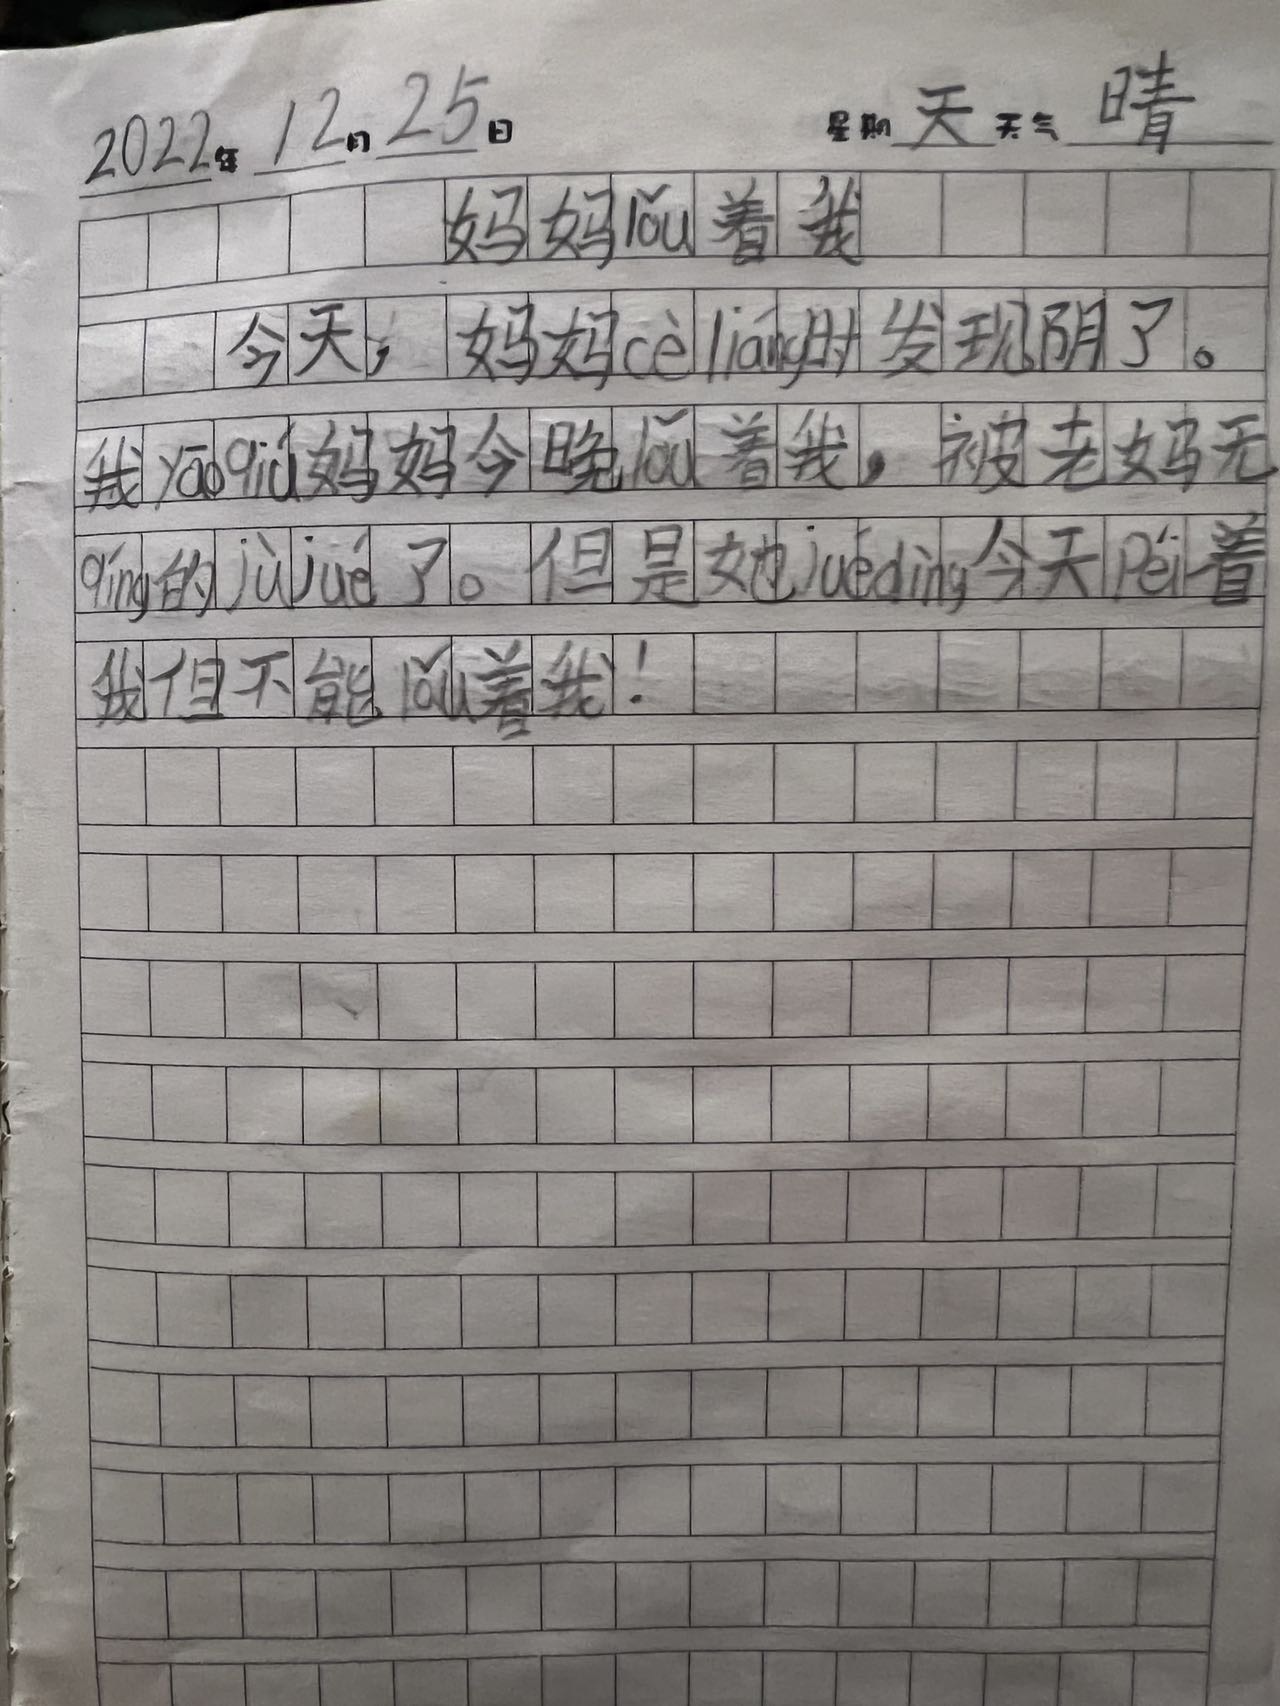 2022年 12月 25日 星期 天 天气 晴
妈妈lǒu着我
今天，妈妈cè liáng时发现阴了。
我yāoqiú妈妈今晚lǒu着我，被老妈无
qíng的jù jué了。但是她juédìng今天péi着
我但不能lǒu着我！